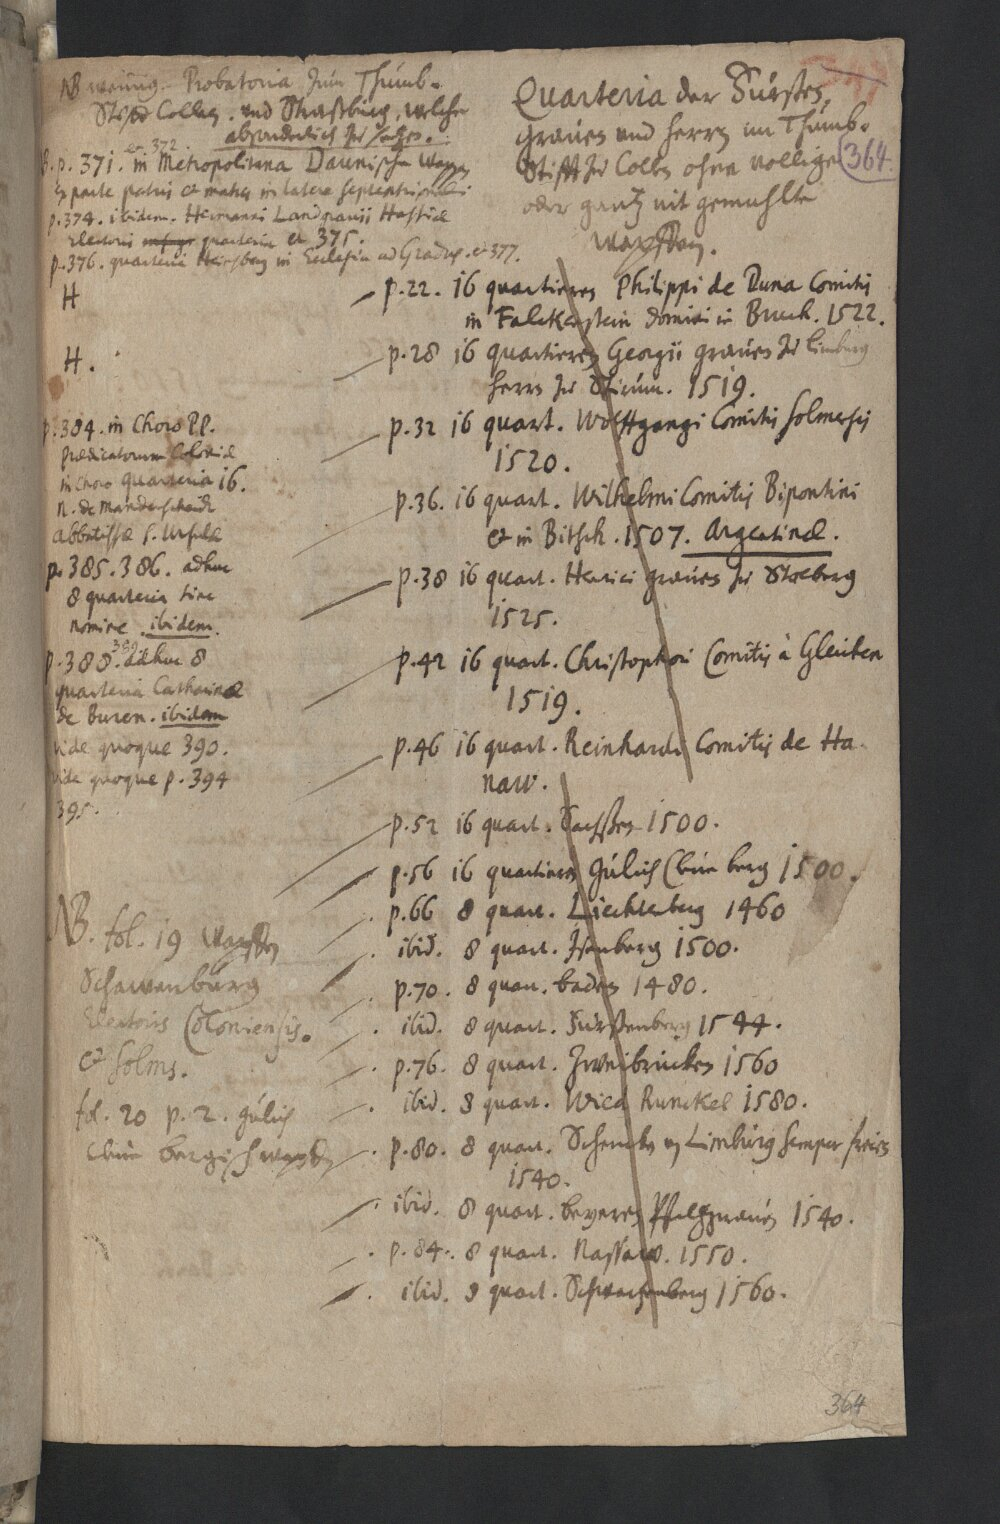 NB wenig. Probatoria zum Thumb-
Stifft Collen. und Straßburg, welche
absonderlich zu setzen.
p. 371. et 372. in Metropolitana Daunische Wappen
Ex parte patris et matris in latere septentrionali
p. 374. ibidem. Hermanni Landgravii Hassiae
Electoris quarteria et 375.
p. 376. quarteria in Ecclesia ad Gradus. et 377.
Quarteria der Fürsten,
graven und herrn im Thumb-
Stifft zu Collen ohne vollige
oder gantz nit gemahlte
Wapffen.
364
H
p. 22. 16 quartieren Philippi de Duna Comitis
in Falckenstein domini in Bruch. 1522.
H.
p. 28 16 quartieren Georgii graven zu Limburg
herrn zu Stirum. 1519.
p. 32 16 quart. Wolffgangi Comitis Solmensis
1520.
p. 36. 16 quart. Wilhelmi Comitis Bipontini
et in Bitsch. 1507. Argentinae.
p. 38 16 quart. Henrici graven zu Stolberg
1525.
p. 42 16 quart. Christophori Comitis à Gleichen
1519.
p. 46 16 quart. Reinhardi Comitis de Ha-
naw.
p. 52 16 quart. Sachsen 1500.
p. 56 16 quartieren Gülich Clev berg 1500.
p. 66 8 quart. Liechtenberg 1460
ibid. 8 quart. Isenberg 1500.
p. 70. 8 quart. baden 1480.
ibid. 8 quart. Fürstenberg 1544.
p. 76. 8 quart. Zweibrücken 1560
ibid. 8 quart. Wied Runckel 1580.
p. 80. 8 quart. Schencken Limburg semper freien
1540.
ibid. 8 quart. beyeren Pfalzgraven 1540.
p. 84. 8 quart. Nassaw. 1550.
ibid. 8 quart. Schwarzenberg 1560.
p. 384. in Choro PP.
Praedicatorum Coloniae
in Choro quarteria 16.
N. de Manderscheidt
Abbatissae S. Ursulae
p. 385. 386. adhuc
8 quarteria sine
nomine ibidem.
p. 388. 389. adhuc 8
quarteria Catharinae
de Buren. ibidem
vide quoque 390.
vide quoque p. 394
395.
NB. fol. 19 Wapffen
Schawenburg
Electoris Coloniensis.
et Solms.
fol. 20 p. 2. gülich
Cleve bergisch wapffen
364